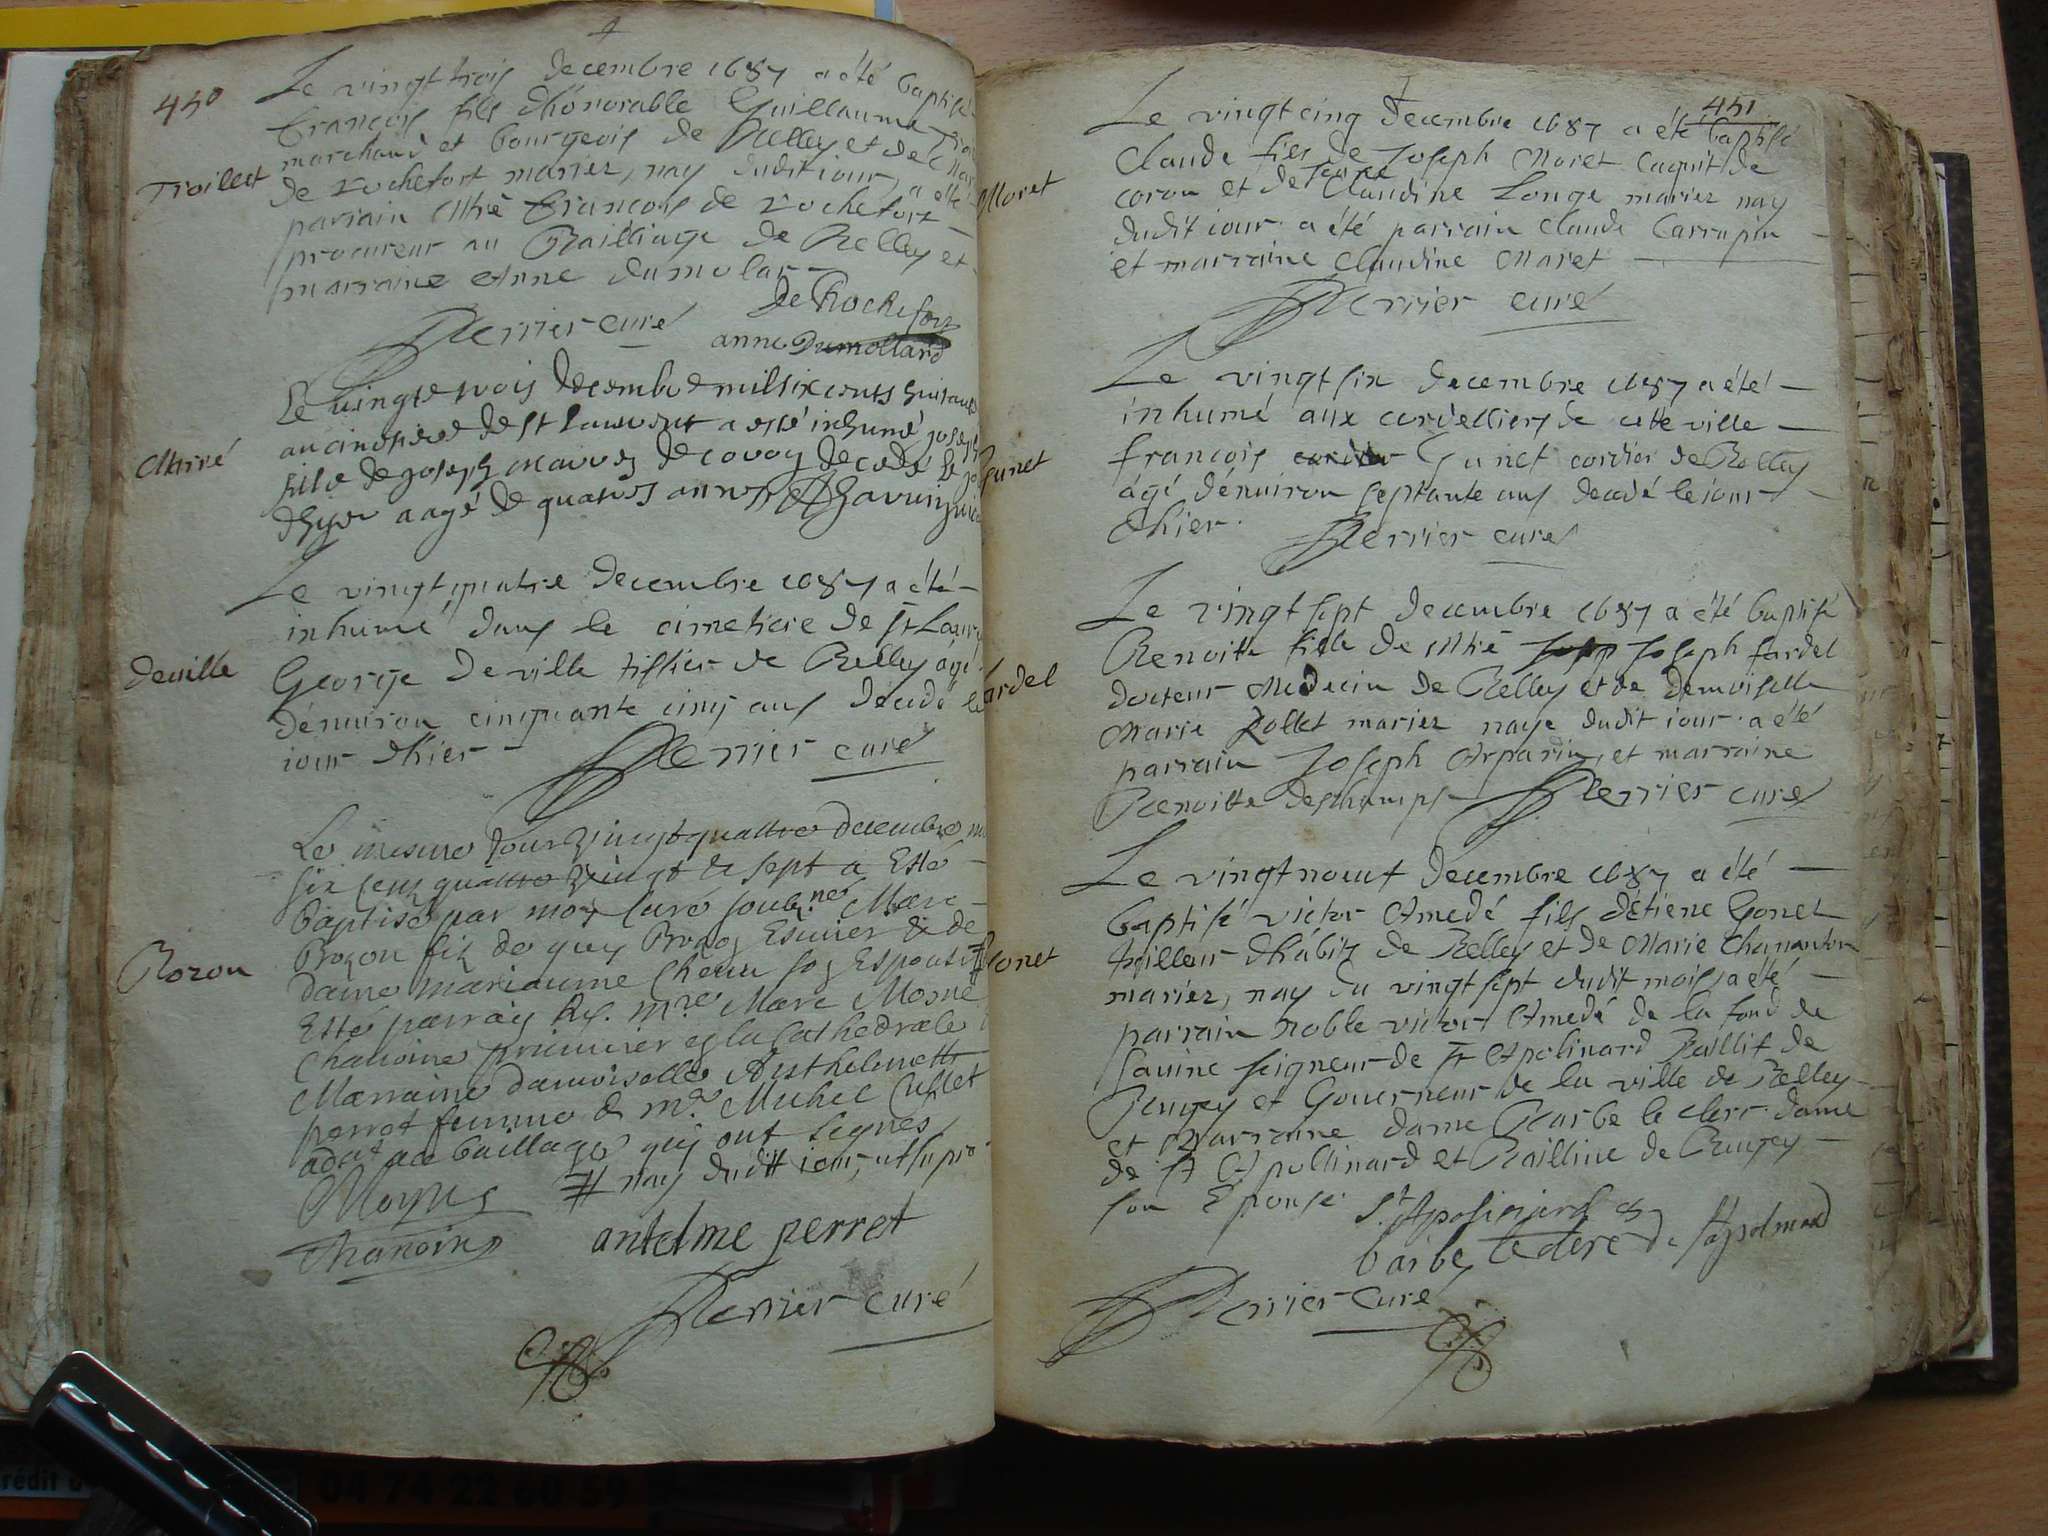 450
Le vingt trois decembre 1687 a été baptisé
francois fils d'honorable Guillaume
marchand et bourgeois de Belley et de
de Rochefort mariez, nay dudit iour, a été
parrain Mre francois de Rochefort
procureur au Bailliage de Belley et
marraine Anne dumolar
Troillet
De Rochefort
Perrier curé
anne Dumollard
Le vingt trois decembre mil six cents
au cimetiere de st Laurent a esté inhumé joseph
fils de joseph de coron decedé le
d'hyer aagé de quatres annés
Marré
Le vingt quatre decembre 1687 a été
inhumé dans le cimetiere de st Laur
George Deville tissier de Belley agé
dénuiron cinquante cinq ans decedé le
iour d'hier
Perrier curé
deuille
Le mesme Jour vingt quattre decembre
six cens quattre vingt & sept a Esté
baptisé par moy curé soubsné Marc
Bozon fiz de guy Bozon Escuier & de
dame mariaume son Espouse
Esté parrain Rd. mre Marc
Chanoine en la Cathedrale
Marraine damoiselle Anthelmette
perret femme de mr Michel Cullet
adat au baillage quy ont signés
# nay dudit iour, ut supra
Bozon
Chanoine
antelme perret
Perrier curé
451
Le vingt cinq decembre 1687 a été baptisé
Claude fils de Joseph Moret de
coron et de Claudine Longe mariez nay
dudit iour a été parrain Claude Carrapin
et marraine Claudine Moret
Moret
Perrier curé
Le vingt six decembre 1687 a été
inhumé aux cordelliers de cette ville
francois Gunet cordier de Belley
âgé dénuiron septante ans decedé le iour
d'hier.
Gunet
Perrier curé
Le vingt sept decembre 1687 a été baptisé
Benoitte fille de Mre Joseph fardel
docteur Medecin de Belley et de demoiselle
Marie Rollet mariez naye dudit iour a été
parrain Joseph Arparin, et marraine
Benoitte deschamps
Perrier curé
fardel
Le vingt noeuf decembre 1687 a été
baptisé victor Amedé fils d'étiene Gonet
tailleur d'habitz de Belley et de Marie
mariez, nay du vingt sept dudit mois, a été
parrain noble victor Amedé de la fond de
sauine seigneur de st Apolinard Baillif de
Beugey et Gouerneur de la ville de Belley
et Marraine dame Barbe le clerc dame
de st Apollinard et Baillive de Beugey
son Epouse.
Gonet
St Apolinard
barbe le clerc de st apolinard
Perrier Curé
04 74 22 60 59